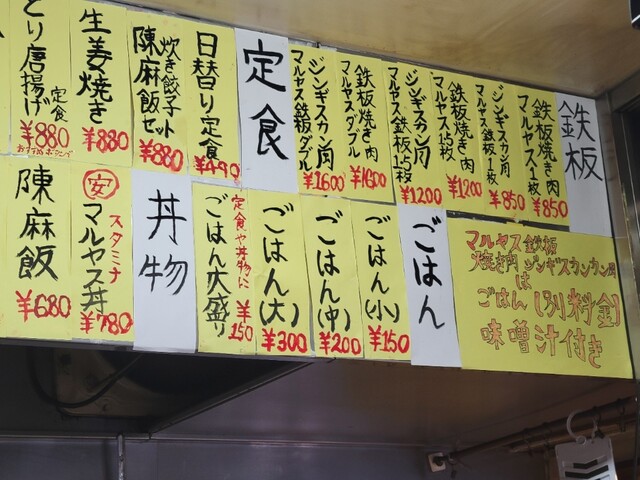 鉄板
鉄板焼き肉
マルヤス1枚
¥850
ジンギスカン肉
マルヤス鉄板1枚
¥850
鉄板焼き肉
マルヤス1.5枚
¥1200
ジンギスカン肉
マルヤス鉄板1.5枚
¥1200
鉄板焼き肉
マルヤスダブル
¥1600
ジンギスカン肉
マルヤス鉄板ダブル
¥1600
定食
日替り定食
¥490
炊き餃子
陳麻飯セット
¥880
生姜焼き
¥880
とり唐揚げ
定食
¥880
マルヤス鉄板
焼き肉 ジンギスカンカン肉
は
ごはん(別料金)
味噌汁付き
ごはん
ごはん(小)
¥150
ごはん(中)
¥200
ごはん(大)
¥300
定食や丼物に
ごはん大盛り
¥150
丼物
スタミナ
安マルヤス丼
¥780
陳麻飯
¥680